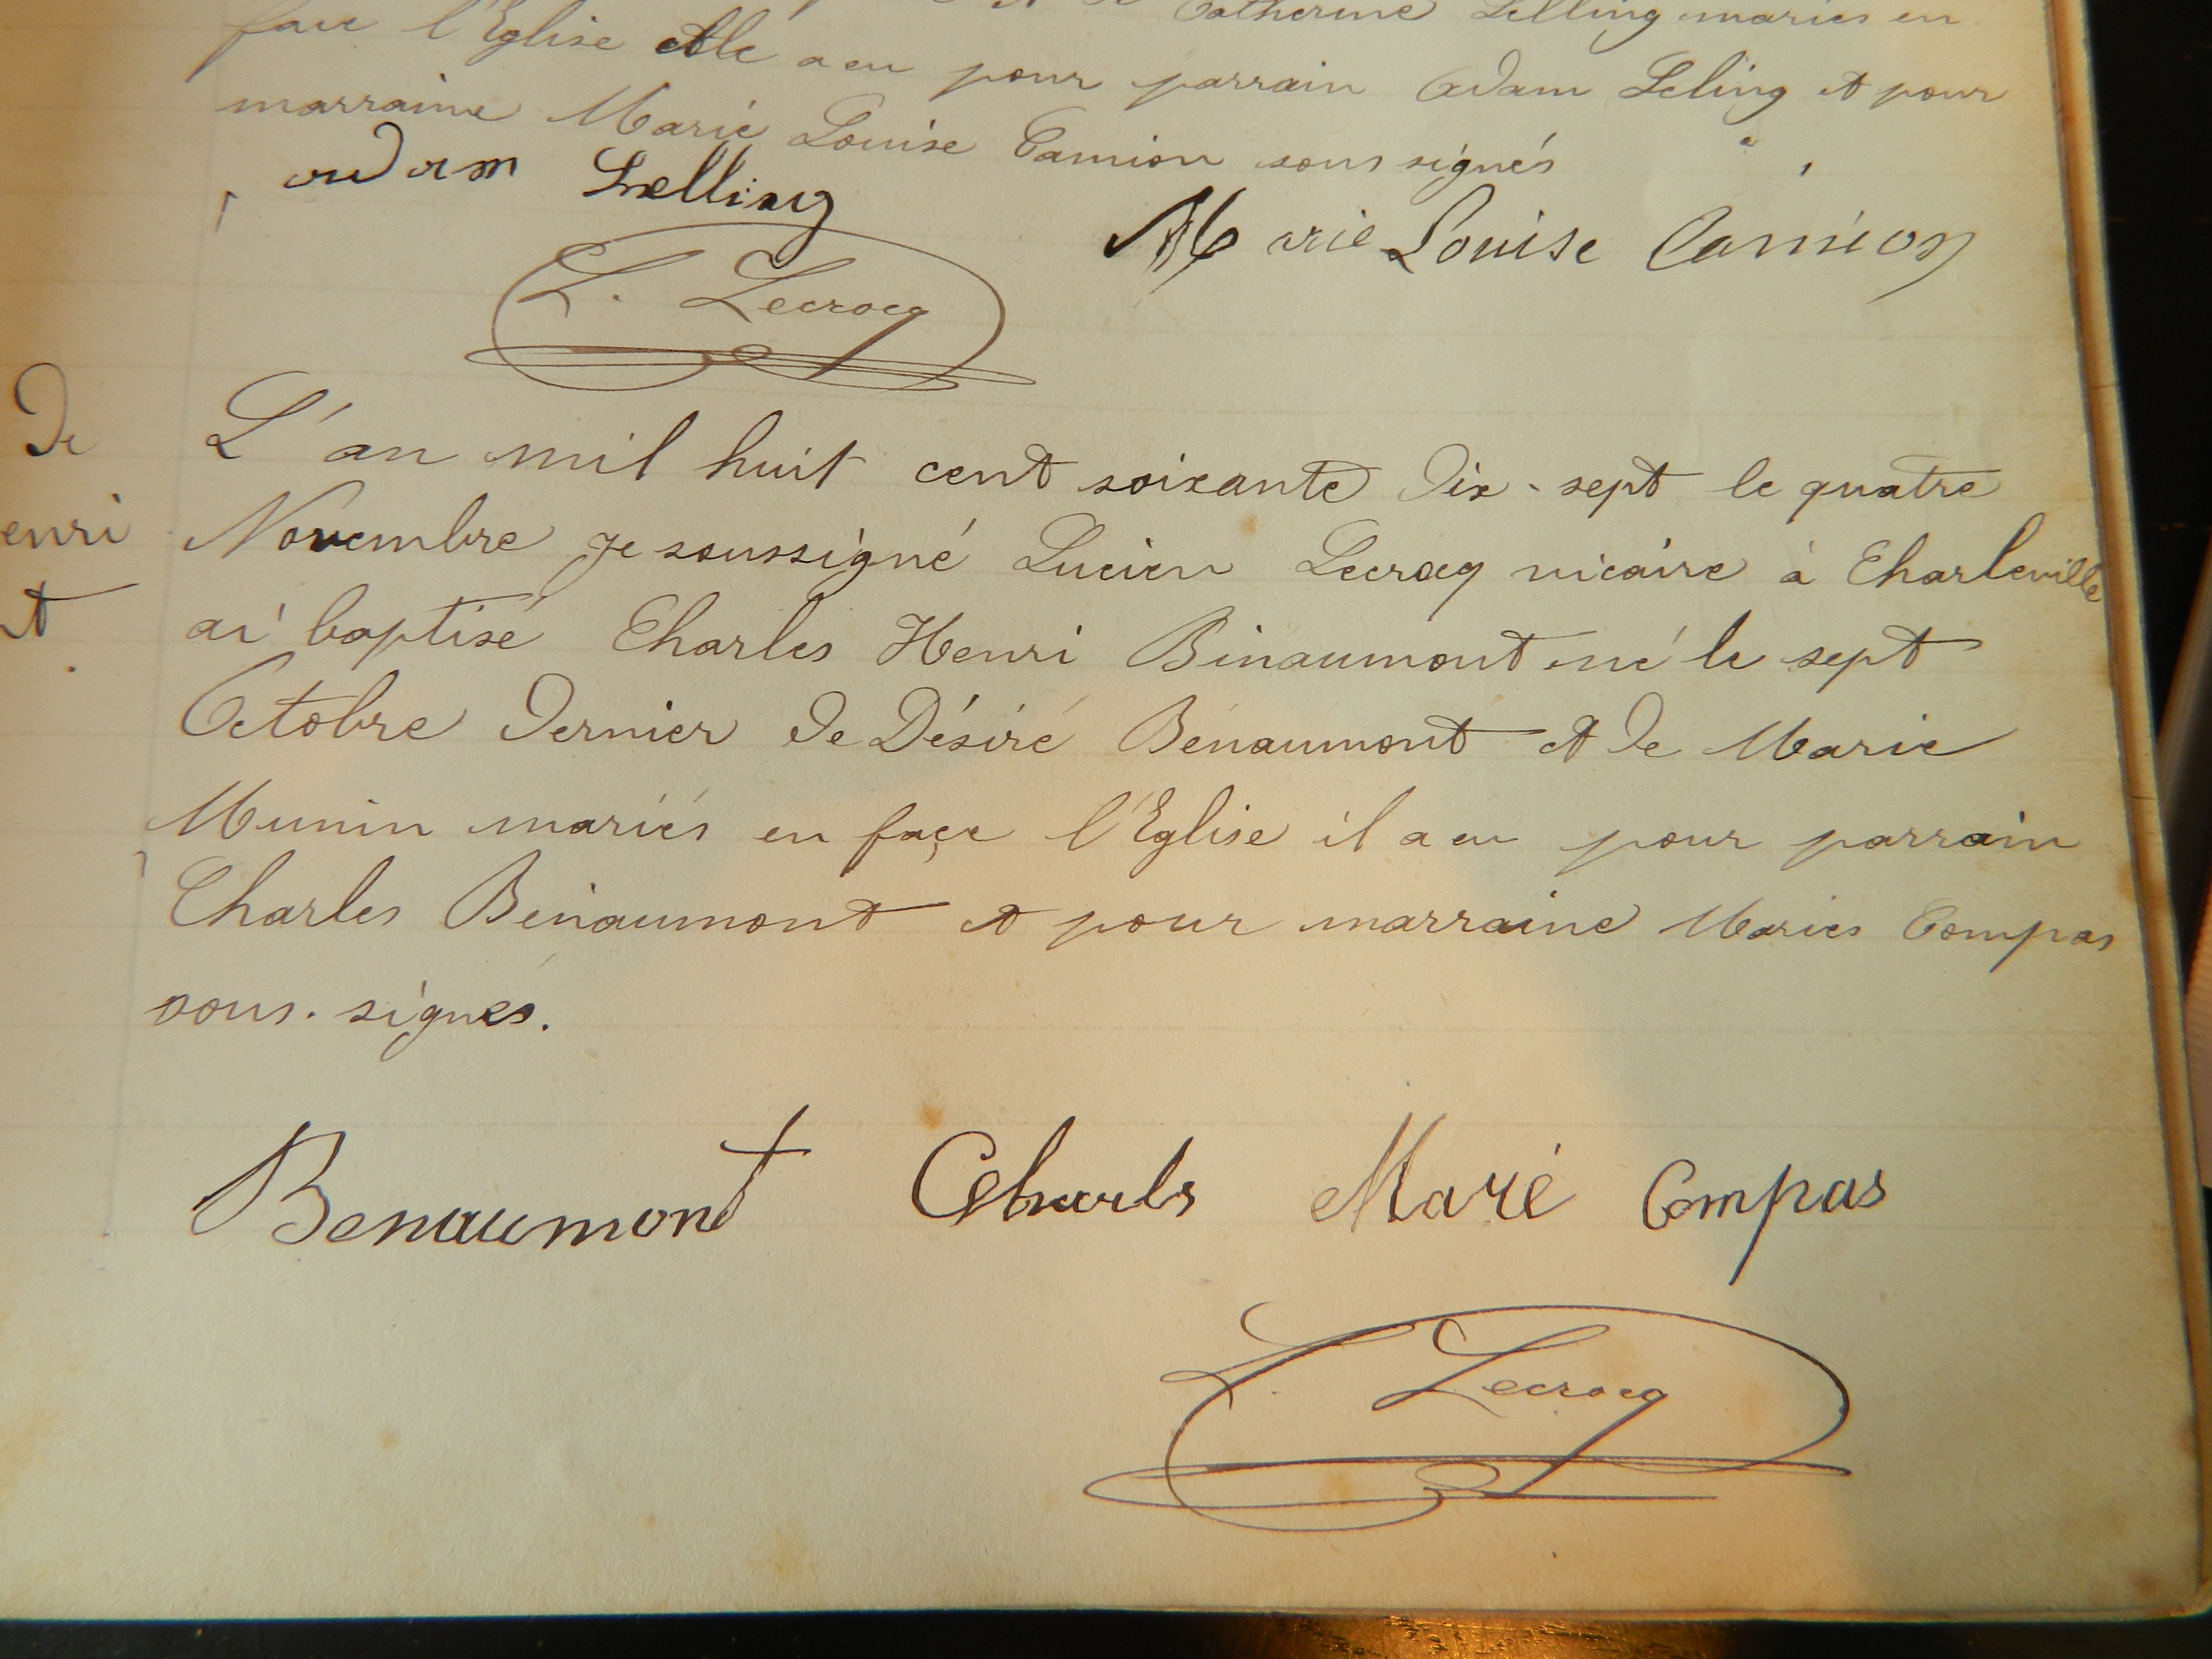 Catherine Lelling mariés en
face l'Eglise elle a eu pour parrain Adam Leling et pour
marraine Marie Louise Camion sous signés
adam Lnelling
Marie Louise Camion
L. Lecrocq
De
L'an mil huit cent soixante dix-sept le quatre
enri
Novembre je soussigné Lucien Lecrocq vicaire à Charleville
nt
ai baptisé Charles Henri Binaumont né le sept
Octobre dernier de Désiré Bénaumont et de Marie
Munin mariés en façe l'Eglise il a eu pour parrain
Charles Bénaumont et pour marraine Maries Compas
sous. signés.
Benaumont Charls Marie Compas
L. Lecrocq